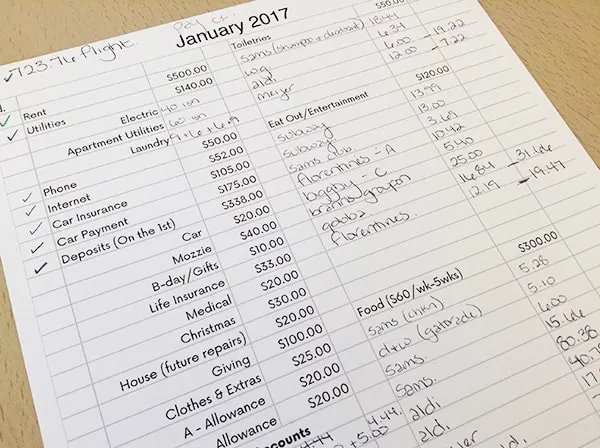 ✓723.76 flight.
Pay cc
January 2017
Rent $500.00
Utilities $140.00
Electric 40
Apartment Utilities 60
Laundry 9+6+6+9
Phone $50.00
Internet $52.00
Car Insurance $105.00
Car Payment $175.00
Deposits (On the 1st) $338.00
Car $20.00
Mozzie $40.00
B-day/Gifts $10.00
Life Insurance $33.00
Medical $20.00
Christmas $30.00
House (future repairs) $20.00
Giving $100.00
Clothes & Extras $25.00
A - Allowance $20.00
Allowance $20.00
counts
4.44
4.44
+5.00
Toiletries $50.00
sams (shampoo + deodorant) 18.44
6.34 -19.22
aldi 6.00 -7.22
meijer 12.00
Eat Out/Entertainment $120.00
subway 13.99
subway 13.00
sams club 3.69
florentines - A 10.42
biggby - C 5.40
groupon 25.00
qdoba 16.84 -31.66
florentines. 12.19 -19.47
Food ($60/wk-5wks) $300.00
sams (chkn) 5.28
(gatorade) 5.10
sams. 6.00
sams. 15.66
aldi 80.38
aldi. 40.7
17.